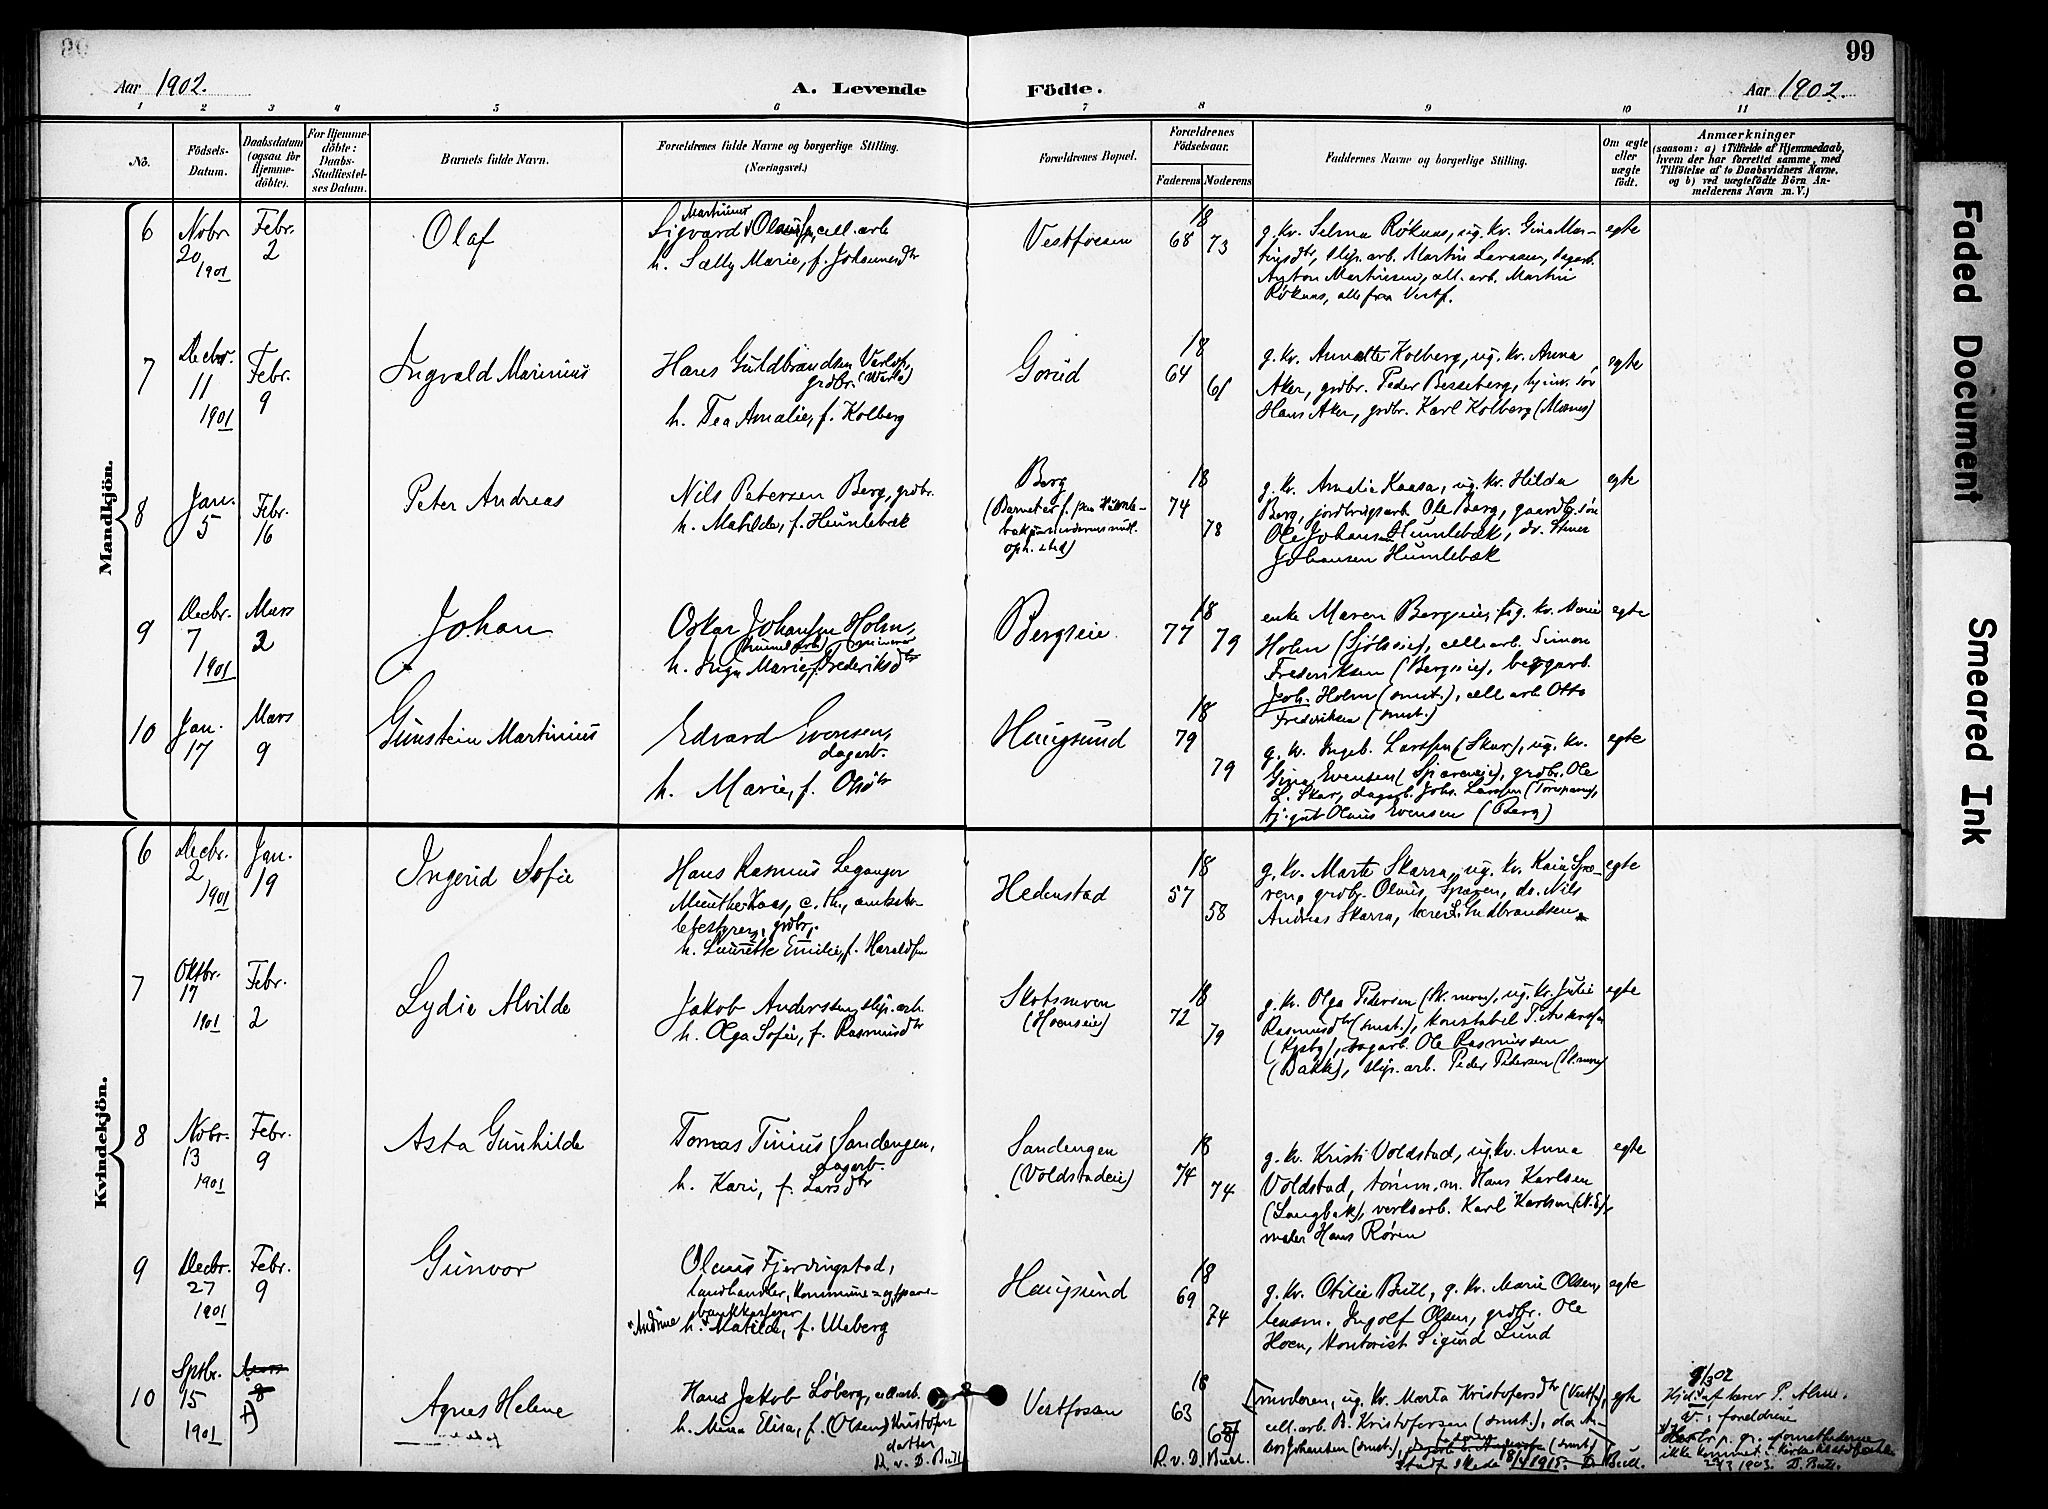 99
Aar 1902.
A. Levende Födte.
Aar 1902.
1 2 3 4 5 6 7 8 9 10 11
No.
Födsels-Datum.
Daabsdatum (ogsaa for Hjemme-döbte).
For Hjemme-döbte: Daabs-Stadfæstel-ses Datum.
Barnets fulde Navn.
Forældrenes fulde Navne og borgerlige Stilling.
(Næringsvei.)
Forældrenes Bopæl.
Forældrenes Födselsaar.
Faderens Moderens
Faddernes Navne og borgerlige Stilling.
Om ægte eller uægte födt.
Anmærkninger
(saasom: a) i Tilfælde af Hjemmedaab,
hvem der har forrettet samme, med
Tilföielse af to Daabsvidners Navne,
og b) ved uægtefödte Börn An-
melderens Navn m. V.)
Mandkjön.
6 Nobr. 20 1901
Febr. 2
Olaf
Martinus
Sigvard Olausen, cell. arb.
h. Sælly Marie, f. Johannesdtr
Vestfossen
18 68 73
g. kv. Selma Røkaas, ug. kv. Gina Mar-
tinsdtr, slip. arb. Martin Larssen, dagarb.
Anton Martinsen, cell. arb. Martin
Røkaas, alle fra Vestf.
egte
7 Decbr. 11 1901
Febr. 9
Ingvald Marinius
Hans Guldbrandsen
grdbr.
h. Tea Amalie, f. Kolberg
Gorud
18 64 61
g. kv. Annette Kolberg, ug. kv. Anna
Aker, grdbr. Peder Besseberg,
Hans Aker, grdbr. Karl Kolberg (Moenes)
egte
8 Jan. 5
Febr. 16
Peter Andreas
Nils Petersen Berg, grdbr.
h. Matilde, f. Humlebæk
Berg
18 74 78
g. kv. Amalie Kaasa, ug. kv. Hilda
Berg, jordbrugsarb. Ole Berg, gaardbr. søn
Ole Johansen Humlebæk, do. Stener
Johansen Humlebæk
egte
9 Decbr. 7 1901
Mars 2
Johan
Oskar Johansen Holm,
h. Inga Marie, f. Frederiksdtr
Bergseie
18 77 79
enke Maren Bergseie, ug. kv. Marie
Holm (Sjølseie), cell. arb. Simon
Frederiksen (Bergseie), beggarb.
Joh. Holm (smst.), cell arb Otto
Frederiksen (smst.)
egte
10 Jan. 17
Mars 9
Gunstein Martinius
Edvard Evensen,
dagarb.
h. Marie, f. Olsdtr
Haugsund
18 79 79
g. kv. Ingeb. Larssen (Skar), ug. kv.
Gina Evensen (Spæreneie), grdbr. Ole
L. Skar, dagarb. Johs. Larssen
tj. gut Olaus Evensen (Berg)
egte
Kvindekjön.
6 Decbr. 2 1901
Jan. 19
Ingerid Sofie
Hans Rasmus Leganger
Munthe Kaas, c. th., amtsko-
lebestyrer, grdbr.,
h. Laurette Emilie, f. Haraldsen
Hedenstad
18 57 58
g. kv. Marte Skarra, ug. kv. Karen Spæ-
ren, grdbr. Olaus Spæren, do. Nils
Andreas Skarra, lærer L. Gudbrandsen
egte
7 Oktbr. 17 1901
Febr. 2
Lydie Alvilde
Jakob Anderssen, slip. arb.
h. Olga Sofie, f. Rasmusdtr
Skotsmoen
(Hoenseie)
18 72 79
g. kv. Olga Pedersen (Sk. moen), ug. kv. Julie
Rasmusdtr (smst.), konstabel T. Andersen
(Kjsbg), dagarb. Ole Rasmussen
(Bakke), slip. arb. Peder Pedersen (Sk. moen)
egte
8 Nobr. 13 1901
Febr. 9
Asta Gunhilde
Tomas Tinius Sandengen,
dagarb.
h. Kari, f. Larsdtr
Sandengen
(Voldstadeie)
18 74 74
g. kv. Kristi Voldstad, ug. kv. Anna
Voldstad, tømm. m. Hans Karlsen
(Langbak), verksarb. Karl Karlsen
maler Hans Røren
egte
9 Decbr. 27 1901
Febr. 9
Gunvor
Olaus Fjerdingstad,
landhandler, kommune- og spare-
bankkasserer
*Andrine h. *Matilde, f. Uleberg
Haugsund
18 69 74
g. kv. Otilie Bull, g. kv. Marie Olsen,
lensm. Ingolf Olsen, grdbr. Ole
Hoen, kontorist Sigurd Lund
egte
10 Septbr. 15 1901
Mars 8
Agnes Helene
Hans Jakob Løberg, cell. arb.
h. Maren Elisa, f. (Olsen) Kristofer
datter
R. v. D. Bull
Vestfossen
18 63
R. v. D. Bull.
moderen, ug. kv. Marta Kristofersdtr (Vestf.),
cell. arb. B. Kristofersen (smst.), do An-
ders Johansen (smst.),
egte
Hjd. af lærer P. Alme.
V.: foreldrene
ikke kommet.
1903. D. Bull.
Faded Document
Smeared Ink